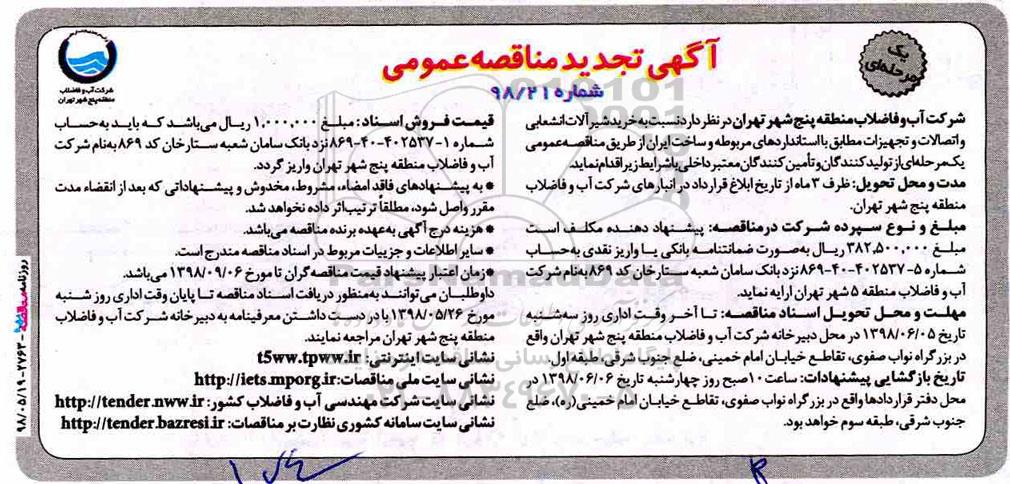 آگهی تجدید مناقصه عمومی
شماره ۹۸/۲۱
یک
مرحله‌ای
شرکت آب و فاضلاب
منطقه پنج شهر تهران
شرکت آب و فاضلاب منطقه پنج شهر تهران در نظر دارد نسبت به خرید شیرآلات انشعابی
و اتصالات و تجهیزات مطابق با استانداردهای مربوطه و ساخت ایران از طریق مناقصه عمومی
یک مرحله‌ای از تولیدکنندگان و تأمین کنندگان معتبر داخلی با شرایط زیر اقدام نماید.
مدت و محل تحویل: ظرف ۳ ماه از تاریخ ابلاغ قرارداد در انبارهای شرکت آب و فاضلاب
منطقه پنج شهر تهران.
مبلغ و نوع سپرده شرکت در مناقصه: پیشنهاد دهنده مکلف است
مبلغ ۳۸۲,۵۰۰,۰۰۰ ریال به‌صورت ضمانتنامه بانکی یا واریز نقدی به‌حساب
شماره ۵-۴۰۲۵۳۷-۴۰-۸۶۹ نزد بانک سامان شعبه ستارخان کد ۸۶۹ به‌نام شرکت
آب و فاضلاب منطقه ۵ شهر تهران ارایه نماید.
مهلت و محل تحویل اسناد مناقصه: تا آخر وقت اداری روز سه‌شنبه
تاریخ ۱۳۹۸/۰۶/۰۵ در محل دبیرخانه شرکت آب و فاضلاب منطقه پنج شهر تهران واقع
در بزرگراه نواب صفوی، تقاطع خیابان امام خمینی، ضلع جنوب شرقی، طبقه اول.
تاریخ بازگشایی پیشنهادات: ساعت ۱۰ صبح روز چهارشنبه تاریخ ۱۳۹۸/۰۶/۰۶ در
محل دفتر قراردادها واقع در بزرگراه نواب صفوی، تقاطع خیابان امام خمینی(ره)، ضلع
جنوب شرقی، طبقه سوم خواهد بود.
قیمت فروش اسناد: مبلغ ۱,۰۰۰,۰۰۰ ریال می‌باشد که باید به‌حساب
شماره ۱-۴۰۲۵۳۷-۴۰-۸۶۹ نزد بانک سامان شعبه ستارخان کد ۸۶۹ به‌نام شرکت
آب و فاضلاب منطقه پنج شهر تهران واریز گردد.
* به پیشنهادهای فاقد امضاء، مشروط، مخدوش و پیشنهاداتی که بعد از انقضاء مدت
مقرر واصل شود، مطلقاً ترتیب‌اثر داده نخواهد شد.
* هزینه درج آگهی به‌عهده برنده مناقصه می‌باشد.
* سایر اطلاعات و جزییات مربوط در اسناد مناقصه مندرج است.
* زمان اعتبار پیشنهاد قیمت مناقصه‌گران تا مورخ ۱۳۹۸/۰۹/۰۶ می‌باشد.
داوطلبان می‌توانند به‌منظور دریافت اسناد مناقصه تا پایان وقت اداری روز شنبه
مورخ ۱۳۹۸/۰۵/۲۶ با در دست داشتن معرفینامه به دبیرخانه شرکت آب و فاضلاب
منطقه پنج شهر تهران مراجعه نمایند.
نشانی سایت اینترنتی: t5ww.tpww.ir
نشانی سایت ملی مناقصات: http://iets.mporg.ir
نشانی سایت شرکت مهندسی آب و فاضلاب کشور: http://tender.nww.ir
نشانی سایت سامانه کشوری نظارت بر مناقصات: http://tender.bazresi.ir
ParsNamadData